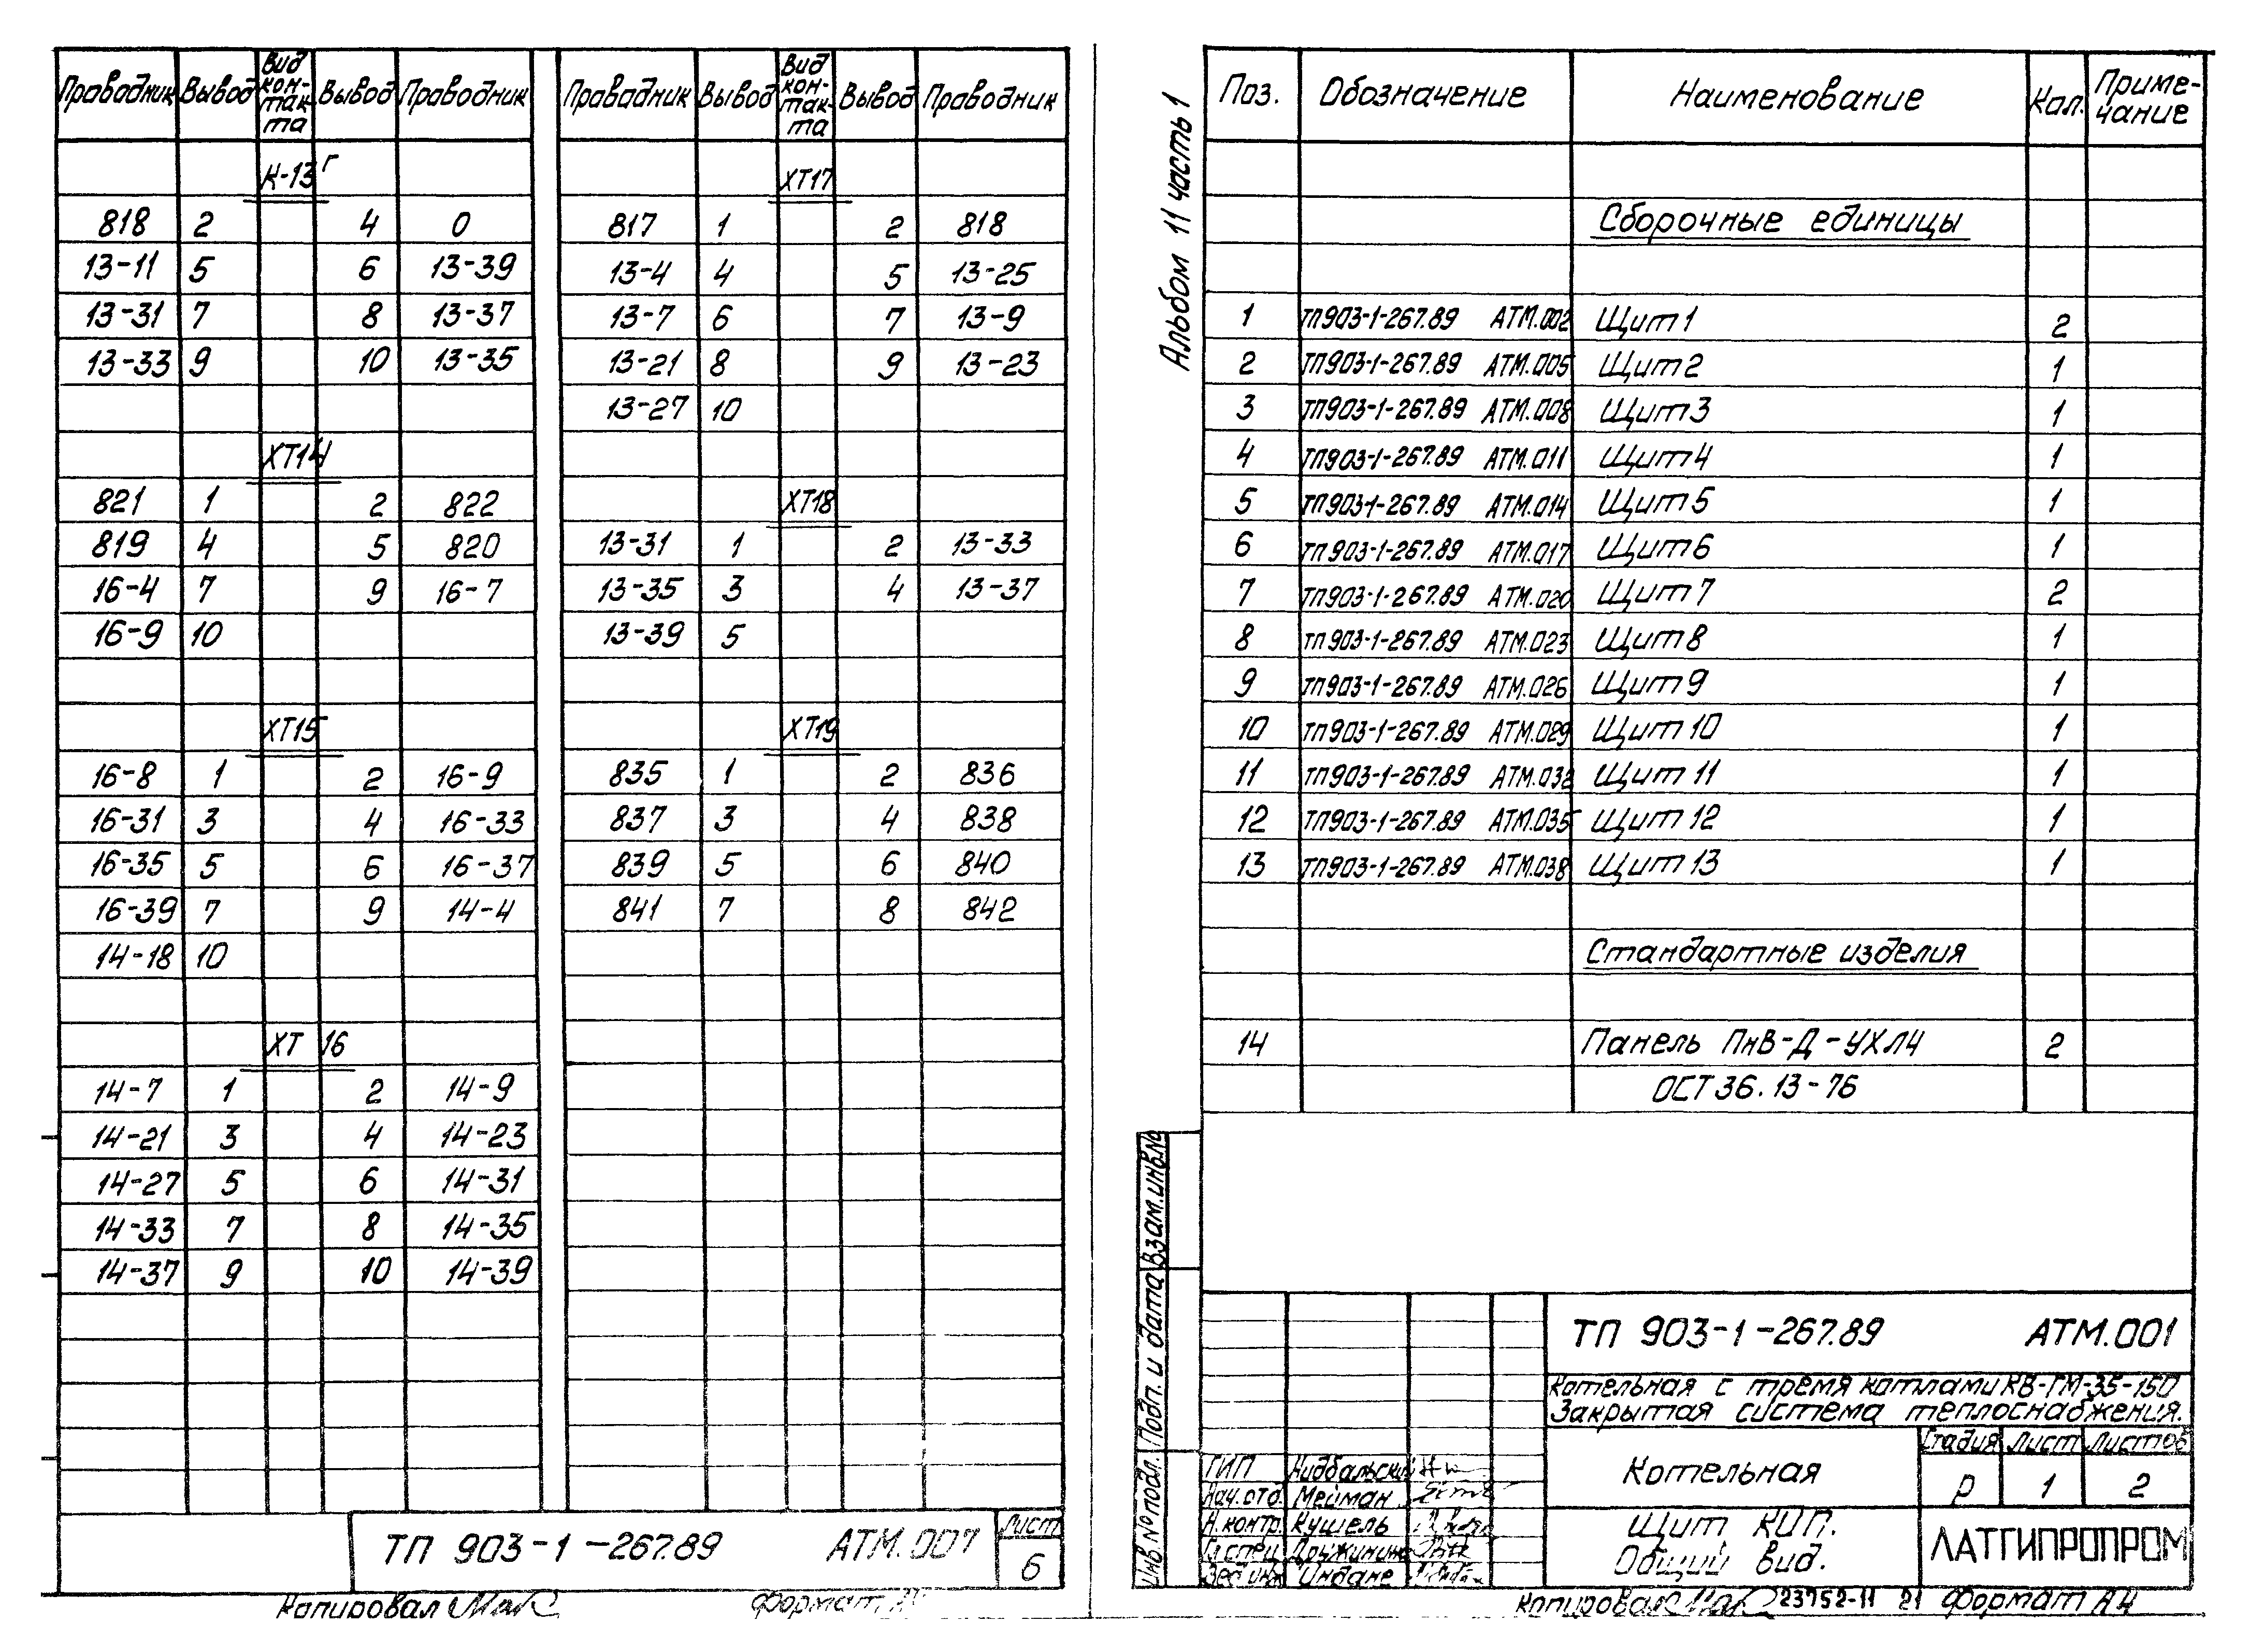 Проводник Вывод Вид контакта Вывод Проводник
К-13Г
818 2 4 0
13-11 5 6 13-39
13-31 7 8 13-37
13-33 9 10 13-35
ХТ14
821 1 2 822
819 4 5 820
16-4 7 9 16-7
16-9 10
ХТ15
16-8 1 2 16-9
16-31 3 4 16-33
16-35 5 6 16-37
16-39 7 9 14-4
14-18 10
ХТ 16
14-7 1 2 14-9
14-21 3 4 14-23
14-27 5 6 14-31
14-33 7 8 14-35
14-37 9 10 14-39
Проводник Вывод Вид контакта Вывод Проводник
ХТ17
817 1 2 818
13-4 4 5 13-25
13-7 6 7 13-9
13-21 8 9 13-23
13-27 10
ХТ18
13-31 1 2 13-33
13-35 3 4 13-37
13-39 5
ХТ19
835 1 2 836
837 3 4 838
839 5 6 840
841 7 8 842
ТП 903-1-267.89 АТМ.007
Лист
6
Копировал
Формат
Альбом 11 часть 1
Поз. Обозначение Наименование Кол. Примечание
Сборочные единицы
1 ТП903-1-267.89 АТМ.002 Щит 1 2
2 ТП903-1-267.89 АТМ.005 Щит 2 1
3 ТП903-1-267.89 АТМ.008 Щит 3 1
4 ТП903-1-267.89 АТМ.011 Щит 4 1
5 ТП903-1-267.89 АТМ.014 Щит 5 1
6 ТП903-1-267.89 АТМ.017 Щит 6 1
7 ТП903-1-267.89 АТМ.020 Щит 7 2
8 ТП903-1-267.89 АТМ.023 Щит 8 1
9 ТП903-1-267.89 АТМ.026 Щит 9 1
10 ТП903-1-267.89 АТМ.029 Щит 10 1
11 ТП903-1-267.89 АТМ.032 Щит 11 1
12 ТП903-1-267.89 АТМ.035 Щит 12 1
13 ТП903-1-267.89 АТМ.038 Щит 13 1
Стандартные изделия
14 Панель ПнВ-Д-УХЛ4 2
ОСТ 36.13-76
Инв.№ подл. Подп. и дата Взам.инв.№
ТП 903-1-267.89 АТМ.001
Котельная с тремя котлами КВ-ГМ-35-150
Закрытая система теплоснабжения.
Котельная
Стадия Лист Листов
Р 1 2
Щит КИП.
Общий вид.
ЛАТГИПРОПРОМ
ГИП Нидбальский
Нач.отд. Мейман
Н.контр. Кушель
Гл.спец.
Индане
Копировал 23752-11 21 Формат А4